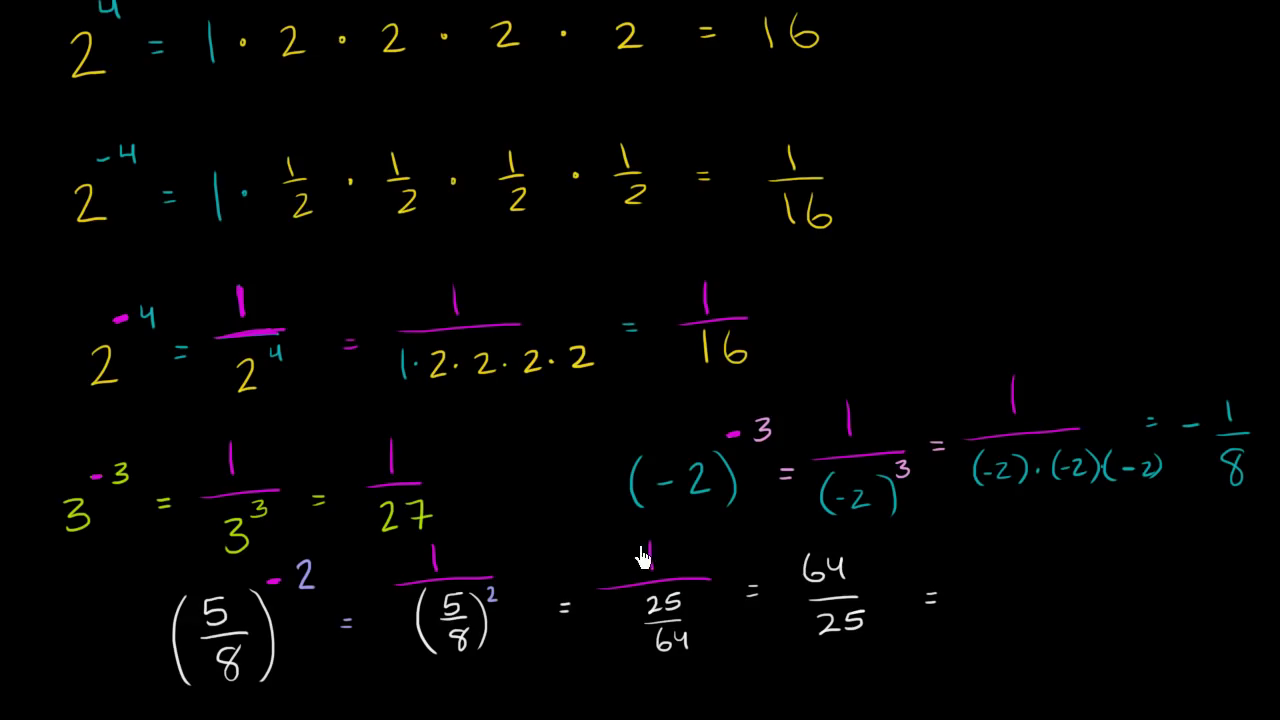 2^4 = 1 · 2 · 2 · 2 · 2 = 16
2^-4 = 1 · 1/2 · 1/2 · 1/2 · 1/2 = 1/16
2^-4 = 1/2^4 = 1/(1·2·2·2·2) = 1/16
3^-3 = 1/3^3 = 1/27
(-2)^-3 = 1/(-2)^3 = 1/((-2)·(-2)·(-2)) = -1/8
(5/8)^-2 = 1/(5/8)^2 = 1/(25/64) = 64/25 =